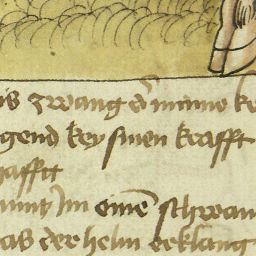 zwang d͛ minne
gend key sinen krafft
hafftt
Im eine͂ schwan
as der helm erklang